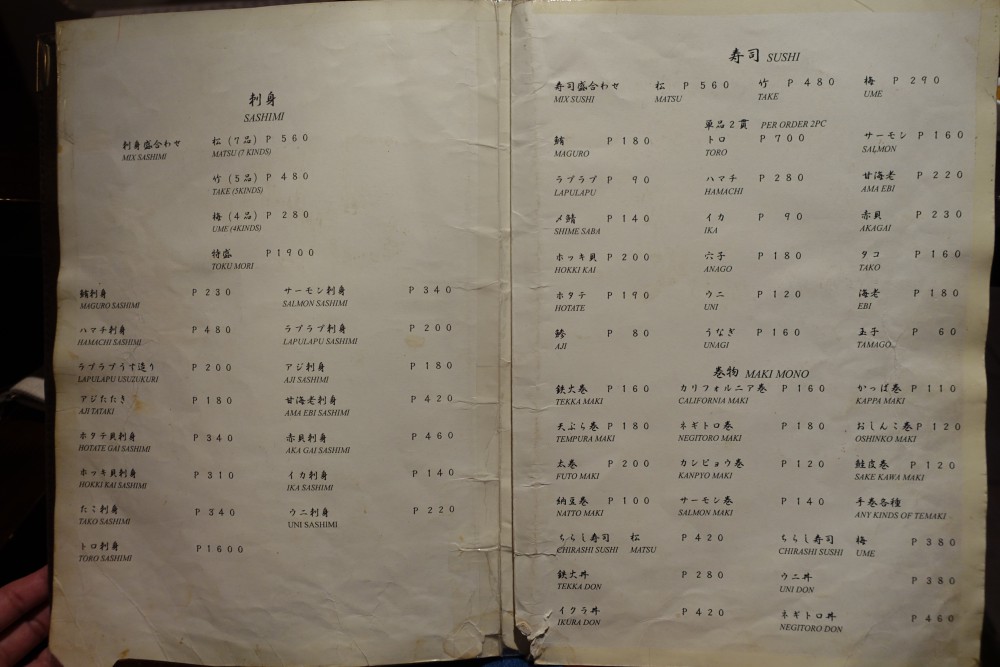 刺身
SASHIMI
刺身盛合わせ 松 (7品) P 560
MIX SASHIMI MATSU (7 KINDS)
竹 (5品) P 480
TAKE (5KINDS)
梅 (4品) P 280
UME (4KINDS)
特盛 P1900
TOKU MORI
鮪刺身 P 230 サーモン刺身 P 340
MAGURO SASHIMI SALMON SASHIMI
ハマチ刺身 P 480 ラプラプ刺身 P 200
HAMACHI SASHIMI LAPULAPU SASHIMI
ラプラプうす造り P 200 アジ刺身 P 180
LAPULAPU USUZUKURI AJI SASHIMI
アジたたき P 180 甘海老刺身 P 420
AJI TATAKI AMA EBI SASHIMI
ホタテ貝刺身 P 340 赤貝刺身 P 460
HOTATE GAI SASHIMI AKA GAI SASHIMI
ホッキ貝刺身 P 310 イカ刺身 P 140
HOKKI KAI SASHIMI IKA SASHIMI
たこ刺身 P 340 ウニ刺身 P 220
TAKO SASHIMI UNI SASHIMI
トロ刺身 P1600
TORO SASHIMI
寿司 SUSHI
寿司盛合わせ 松 P 560 竹 P 480 梅 P 290
MIX SUSHI MATSU TAKE UME
単品2貫 PER ORDER 2PC
鮪 P 180 トロ P 700 サーモン P 160
MAGURO TORO SALMON
ラプラプ P 90 ハマチ P 280 甘海老 P 220
LAPULAPU HAMACHI AMA EBI
〆鯖 P 140 イカ P 90 赤貝 P 230
SHIME SABA IKA AKAGAI
ホッキ貝 P 200 穴子 P 180 タコ P 160
HOKKI KAI ANAGO TAKO
ホタテ P 190 ウニ P 120 海老 P 180
HOTATE UNI EBI
鯵 P 80 うなぎ P 160 玉子 P 60
AJI UNAGI TAMAGO
巻物 MAKI MONO
鉄火巻 P 160 カリフォルニア巻 P 160 かっぱ巻 P 110
TEKKA MAKI CALIFORNIA MAKI KAPPA MAKI
天ぷら巻 P 180 ネギトロ巻 P 180 おしんこ巻 P 120
TEMPURA MAKI NEGITORO MAKI OSHINKO MAKI
太巻 P 200 カンピョウ巻 P 120 鮭皮巻 P 120
FUTO MAKI KANPYO MAKI SAKE KAWA MAKI
納豆巻 P 100 サーモン巻 P 140 手巻各種
NATTO MAKI SALMON MAKI ANY KINDS OF TEMAKI
ちらし寿司 松 P 420 ちらし寿司 梅 P 380
CHIRASHI SUSHI MATSU CHIRASHI SUSHI UME
鉄火丼 P 280 ウニ丼 P 380
TEKKA DON UNI DON
イクラ丼 P 420 ネギトロ丼 P 460
IKURA DON NEGITORO DON